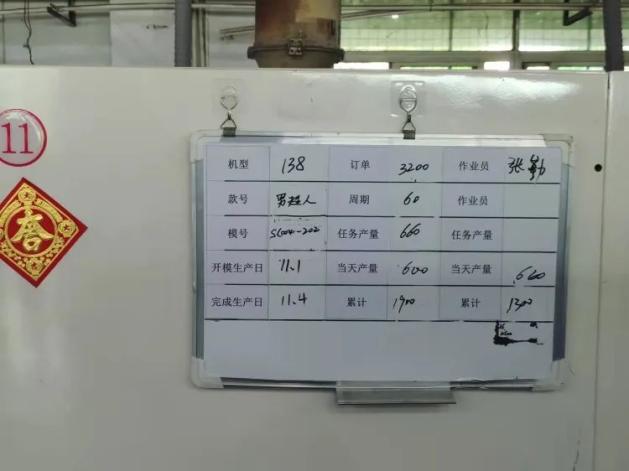 11
机型 138 订单 3200 作业员 张勤
款号 男超人 周期 60 作业员
模号 SC004-202 任务产量 660 任务产量
开模生产日 11.1 当天产量 600 当天产量 660
完成生产日 11.4 累计 1900 累计 1300